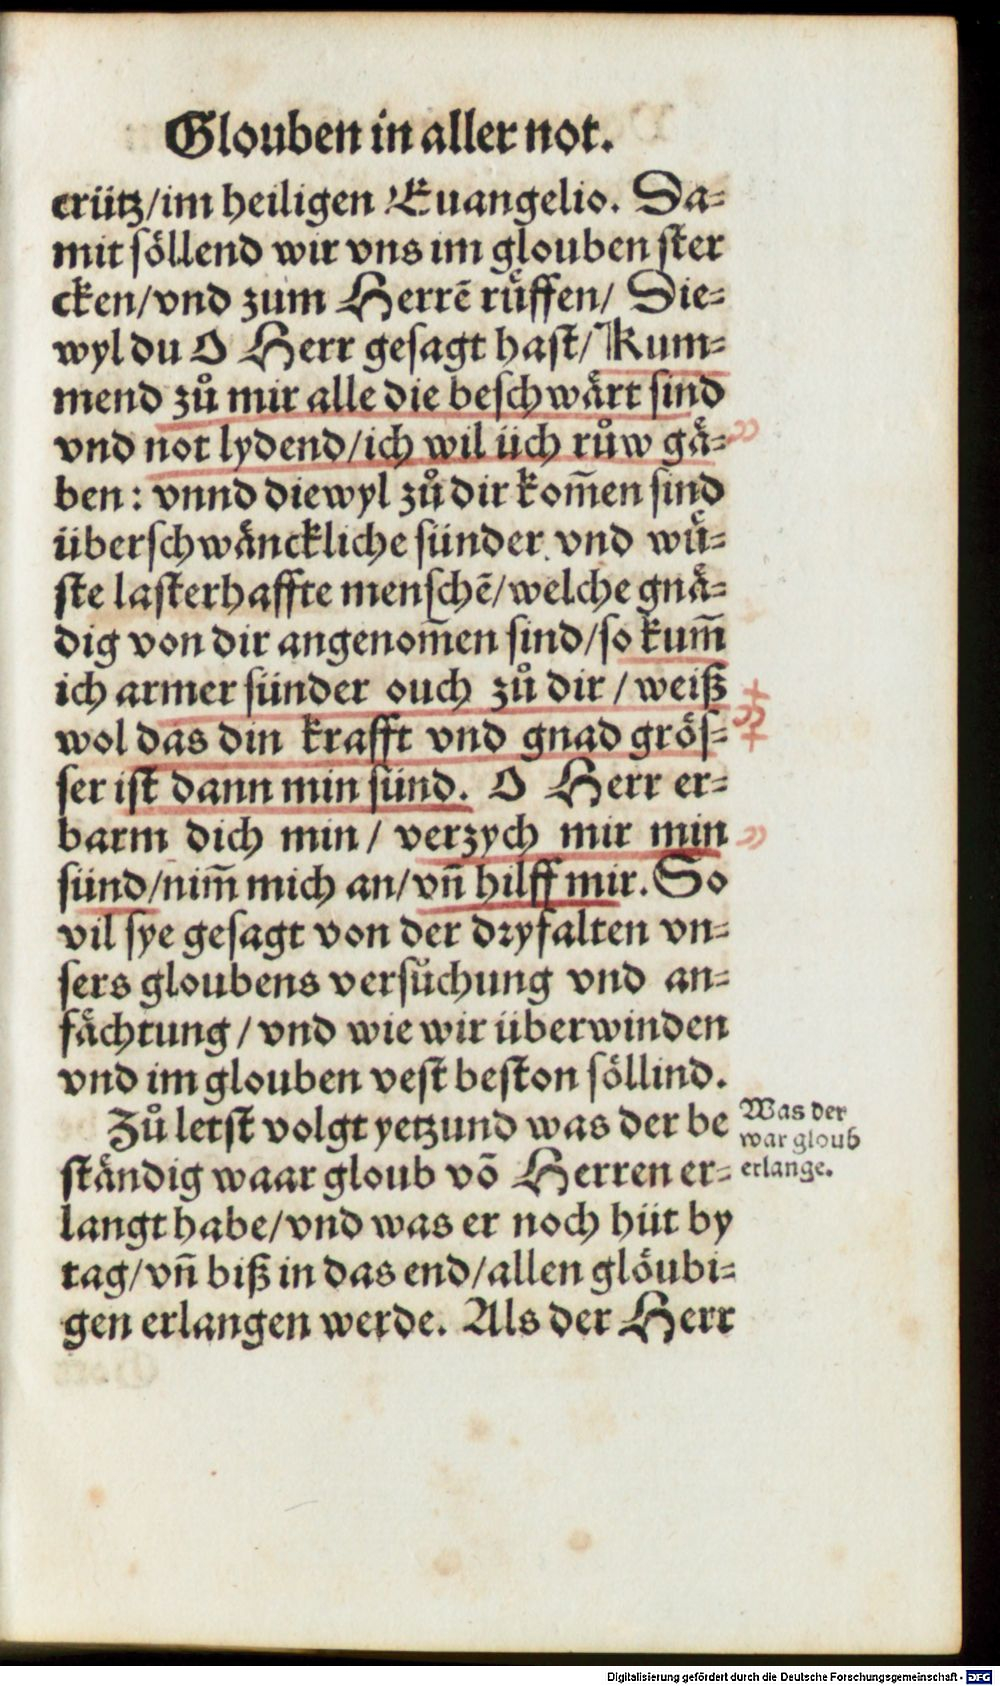 Glouben in aller not.
crütz/im heiligen Euangelio. Da-
mit söllend wir vns im glouben ster
cken/vnd zum Herrē rüffen/ Die-
wyl du O Herr gesagt hast/Kum-
mend zů mir alle die beschwärt sind
vnd not lydend/ich wil üch růw gä-
ben: vnnd diewyl zů dir kom̃en sind
überschwänckliche sünder vnd wü-
ste lasterhaffte menschē/welche gnä-
dig von dir angenom̃en sind/so kum̃
ich armer sünder ouch zů dir/weiß
wol das din krafft vnd gnad grös-
ser ist dann min sünd. O Herr er-
barm dich min/ verzych mir min
sünd/nim̃ mich an/vn̄ hilff mir. So
vil sye gesagt von der dryfalten vn-
sers gloubens versůchung vnd an-
fächtung/vnd wie wir überwinden
vnd im glouben vest beston söllind.
Zů letst volgt yetzund was der be
ständig waar gloub vō Herren er-
langt habe/vnd was er noch hüt by
tag/vn̄ biß in das end/allen glöubi-
gen erlangen werde. Als der Herr
Was der
war gloub
erlange.
Digitalisierung gefördert durch die Deutsche Forschungsgemeinschaft - DFG